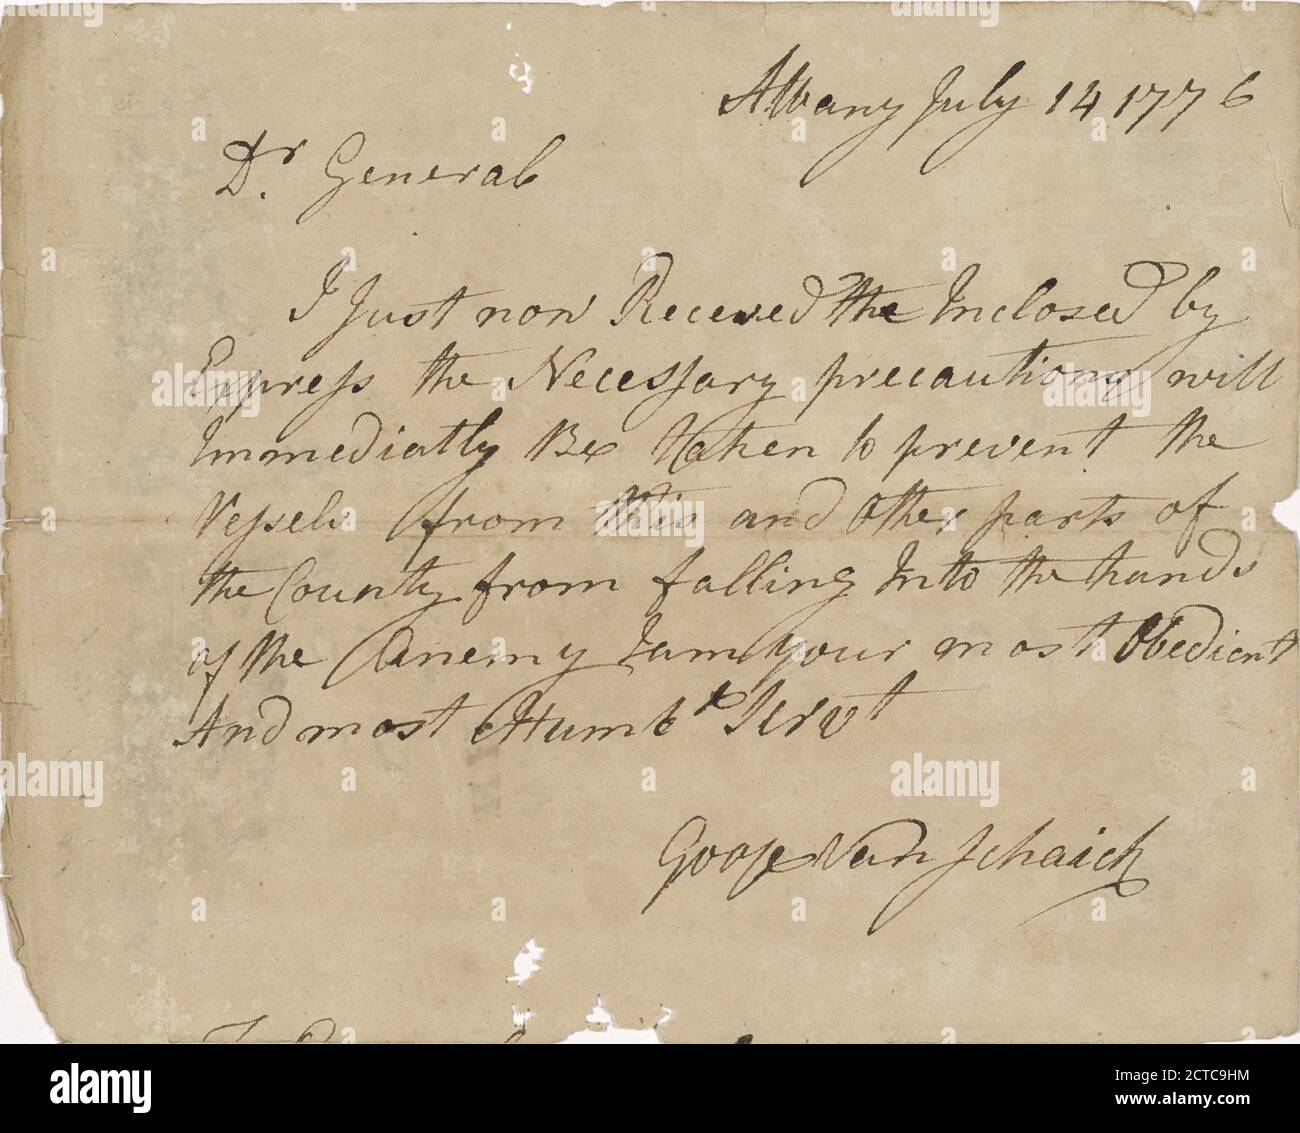 Albany July 14 1776
Dr. General
I Just now Receved the Inclosed by
Express the Necessary precautions will
Immediatly Be taken to prevent the
Vessels from this and Other parts of
the County from falling Into the hands
of the Enemy I am your most Obedient
And most Humble Servt
Goose Van Schaick
alamy
Image ID: 2CTC9HM
www.alamy.com